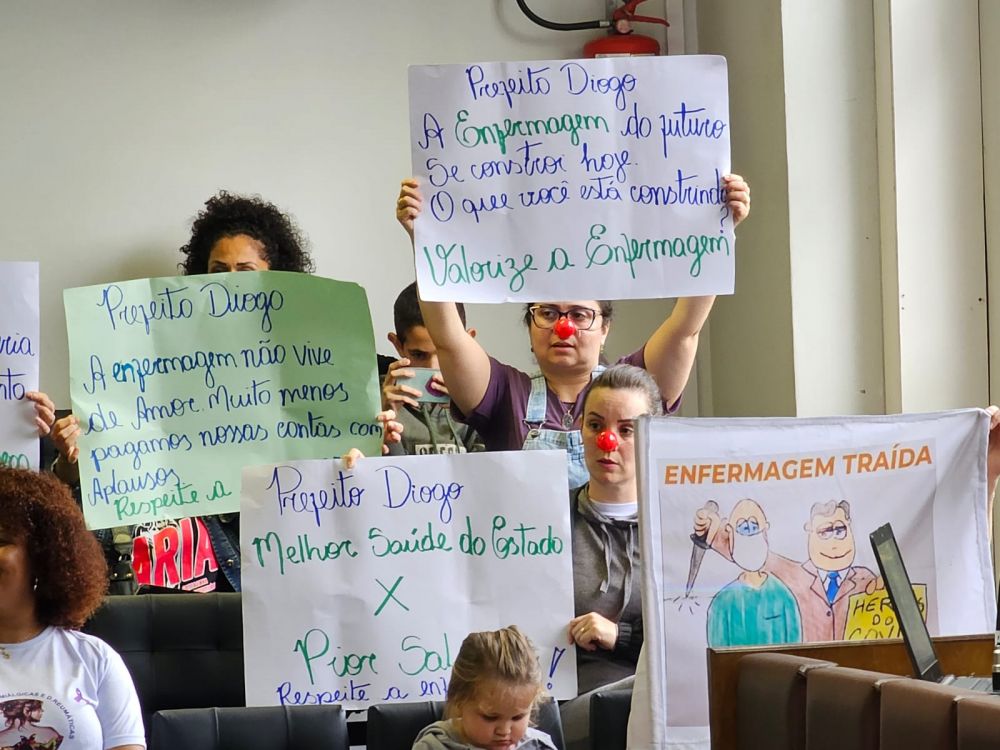 Prefeito Diogo
A Enfermagem do futuro
Se constroi hoje.
O que você está construindo
?
Valorize a Enfermagem
Prefeito Diogo
A enfermagem não vive
de Amor. Muito menos
pagamos nossas contas com
Aplausos
Respeite a
Prefeito Diogo
Melhor Saúde do Estado
X
Pior Sal
Respeite a en
!
ENFERMAGEM TRAÍDA
HER
DO
COVI
ARIA